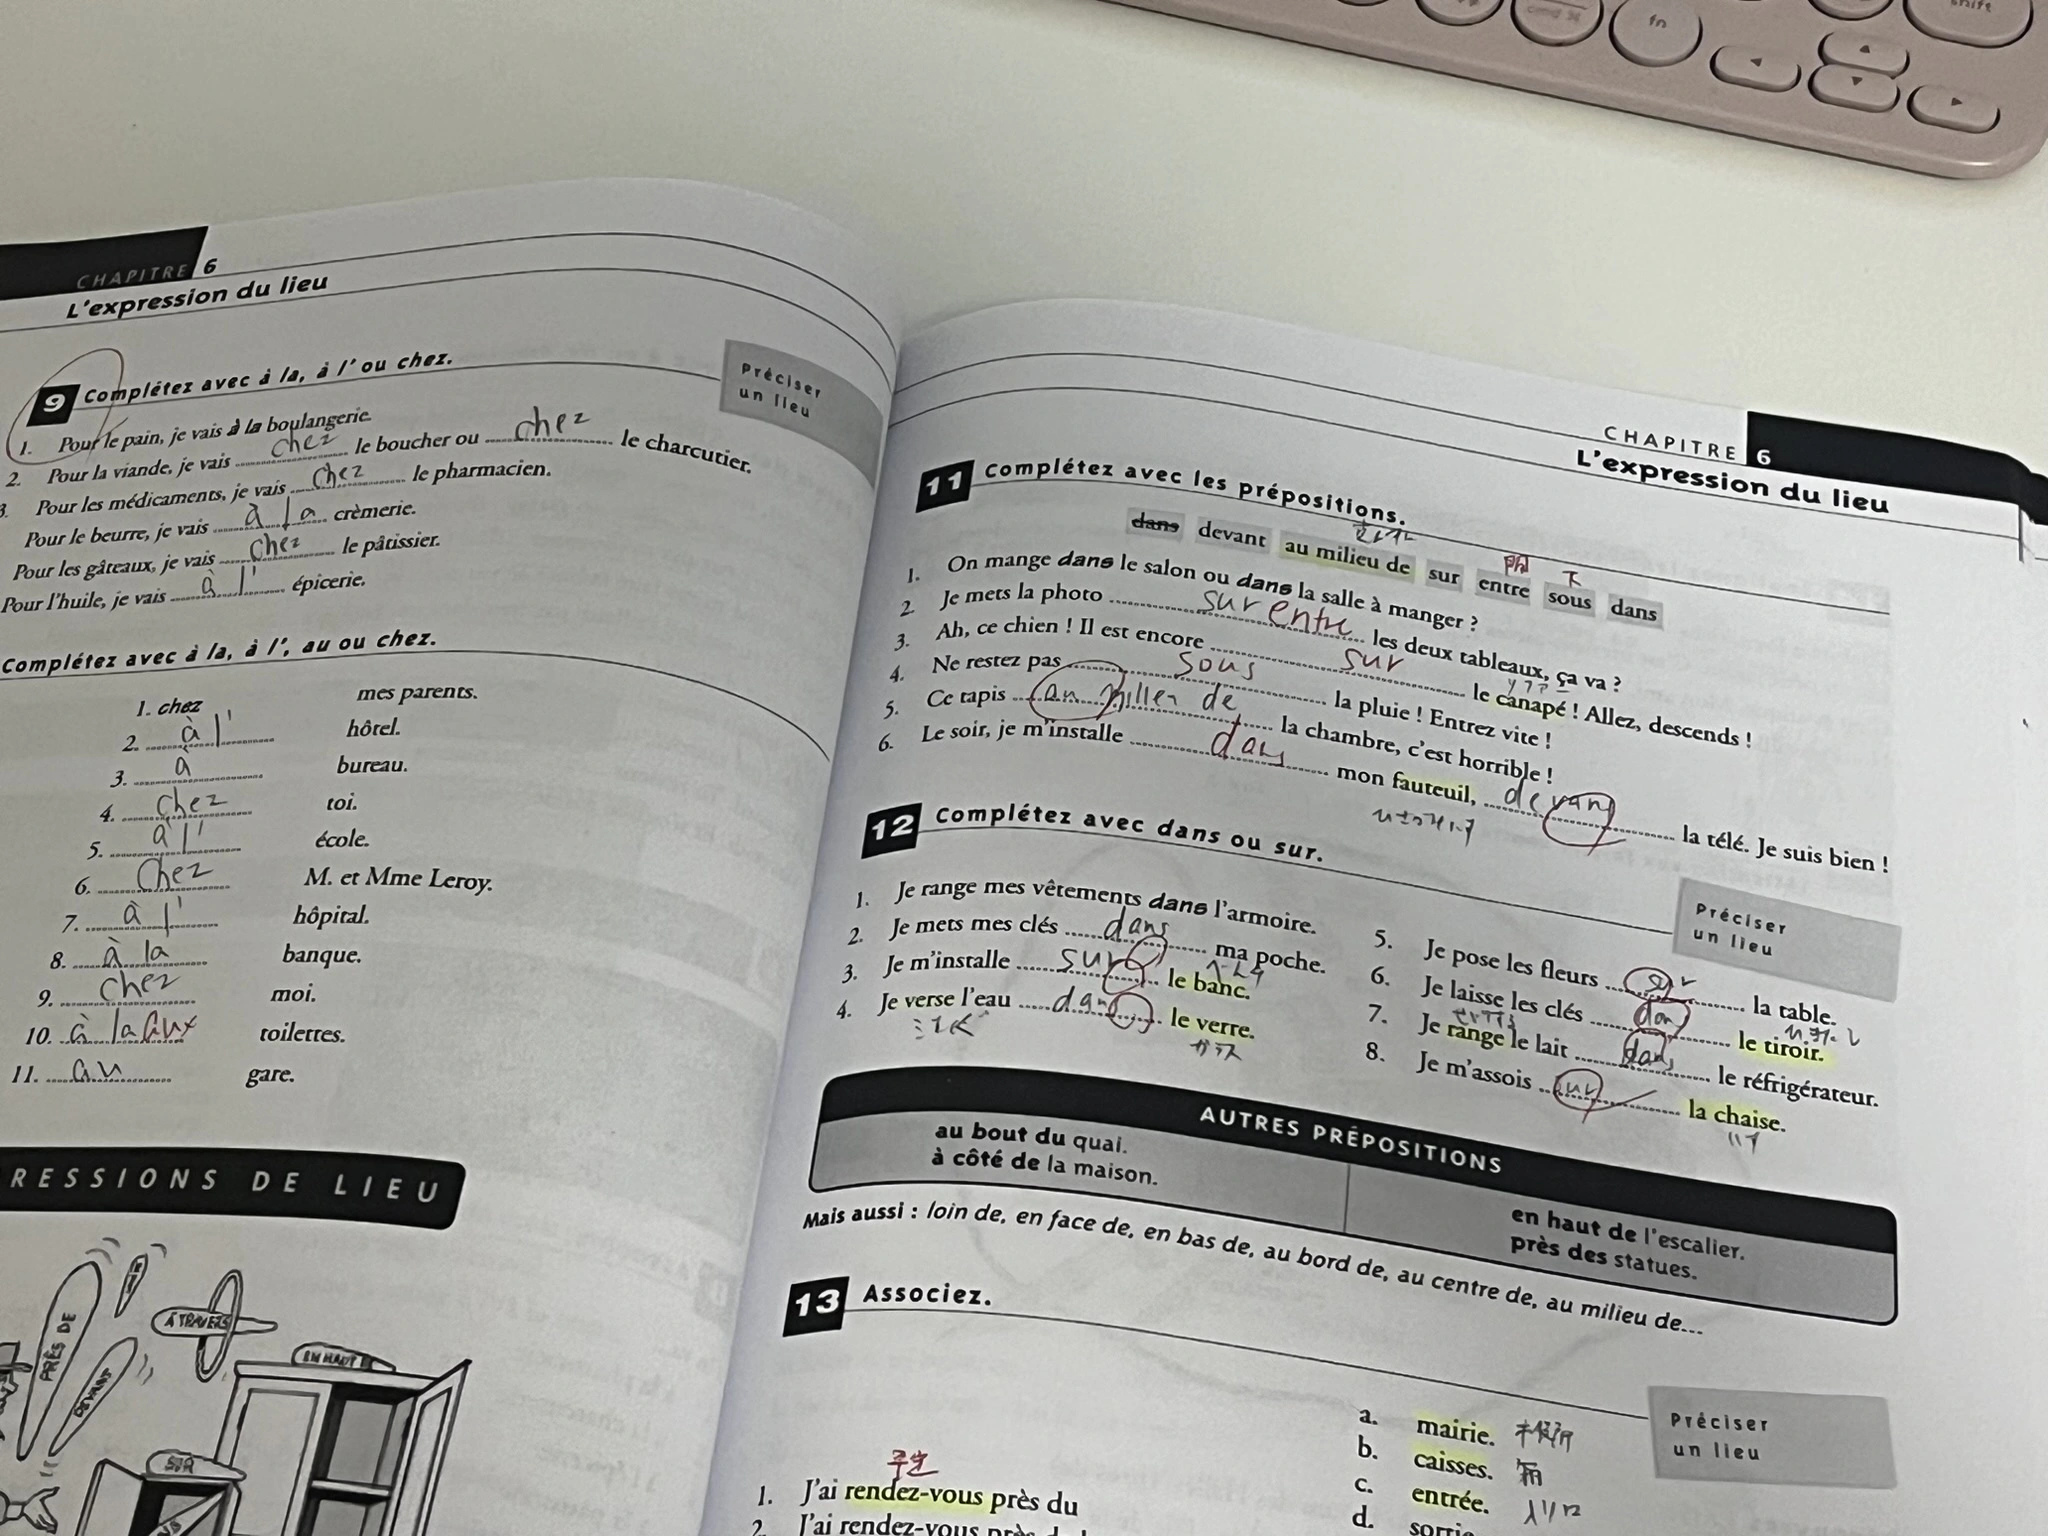 CHAPITRE 6
L'expression du lieu
9 Complétez avec à la, à l' ou chez.
Préciser
un lieu
1. Pour le pain, je vais à la boulangerie.
2. Pour la viande, je vais chez le boucher ou chez le charcutier.
3. Pour les médicaments, je vais chez le pharmacien.
Pour le beurre, je vais à la crèmerie.
Pour les gâteaux, je vais chez le pâtissier.
Pour l'huile, je vais à l' épicerie.
Complétez avec à la, à l', au ou chez.
1. chez mes parents.
2. à l' hôtel.
3. à bureau.
4. chez toi.
5. à l' école.
6. chez M. et Mme Leroy.
7. à l' hôpital.
8. à la banque.
9. chez moi.
10. à la aux toilettes.
11. au gare.
RESSIONS DE LIEU
PRÈS DE
DEVANT
À TRAVERS
EN HAUT
SUR
CHAPITRE 6
L'expression du lieu
11 Complétez avec les prépositions.
dans devant au milieu de sur entre sous dans
下
1. On mange dans le salon ou dans la salle à manger ?
2. Je mets la photo sur entre les deux tableaux, ça va ?
3. Ah, ce chien ! Il est encore sur le canapé ! Allez, descends !
4. Ne restez pas sous la pluie ! Entrez vite !
5. Ce tapis au milieu de la chambre, c'est horrible !
6. Le soir, je m'installe dans mon fauteuil, devant la télé. Je suis bien !
12 Complétez avec dans ou sur.
Préciser
un lieu
1. Je range mes vêtements dans l'armoire.
2. Je mets mes clés dans ma poche.
3. Je m'installe sur le banc.
ベンチ
4. Je verse l'eau dans le verre.
ガラス
5. Je pose les fleurs sur la table.
6. Je laisse les clés dans le tiroir.
7. Je range le lait dans le réfrigérateur.
8. Je m'assois sur la chaise.
AUTRES PRÉPOSITIONS
au bout du quai.
à côté de la maison.
en haut de l'escalier.
près des statues.
Mais aussi : loin de, en face de, en bas de, au bord de, au centre de, au milieu de...
13 Associez.
Préciser
un lieu
1. J'ai rendez-vous près du
2. J'ai rendez-vous près de l
a. mairie.
b. caisses.
c. entrée. 入り口
d. sortie
fn
shift